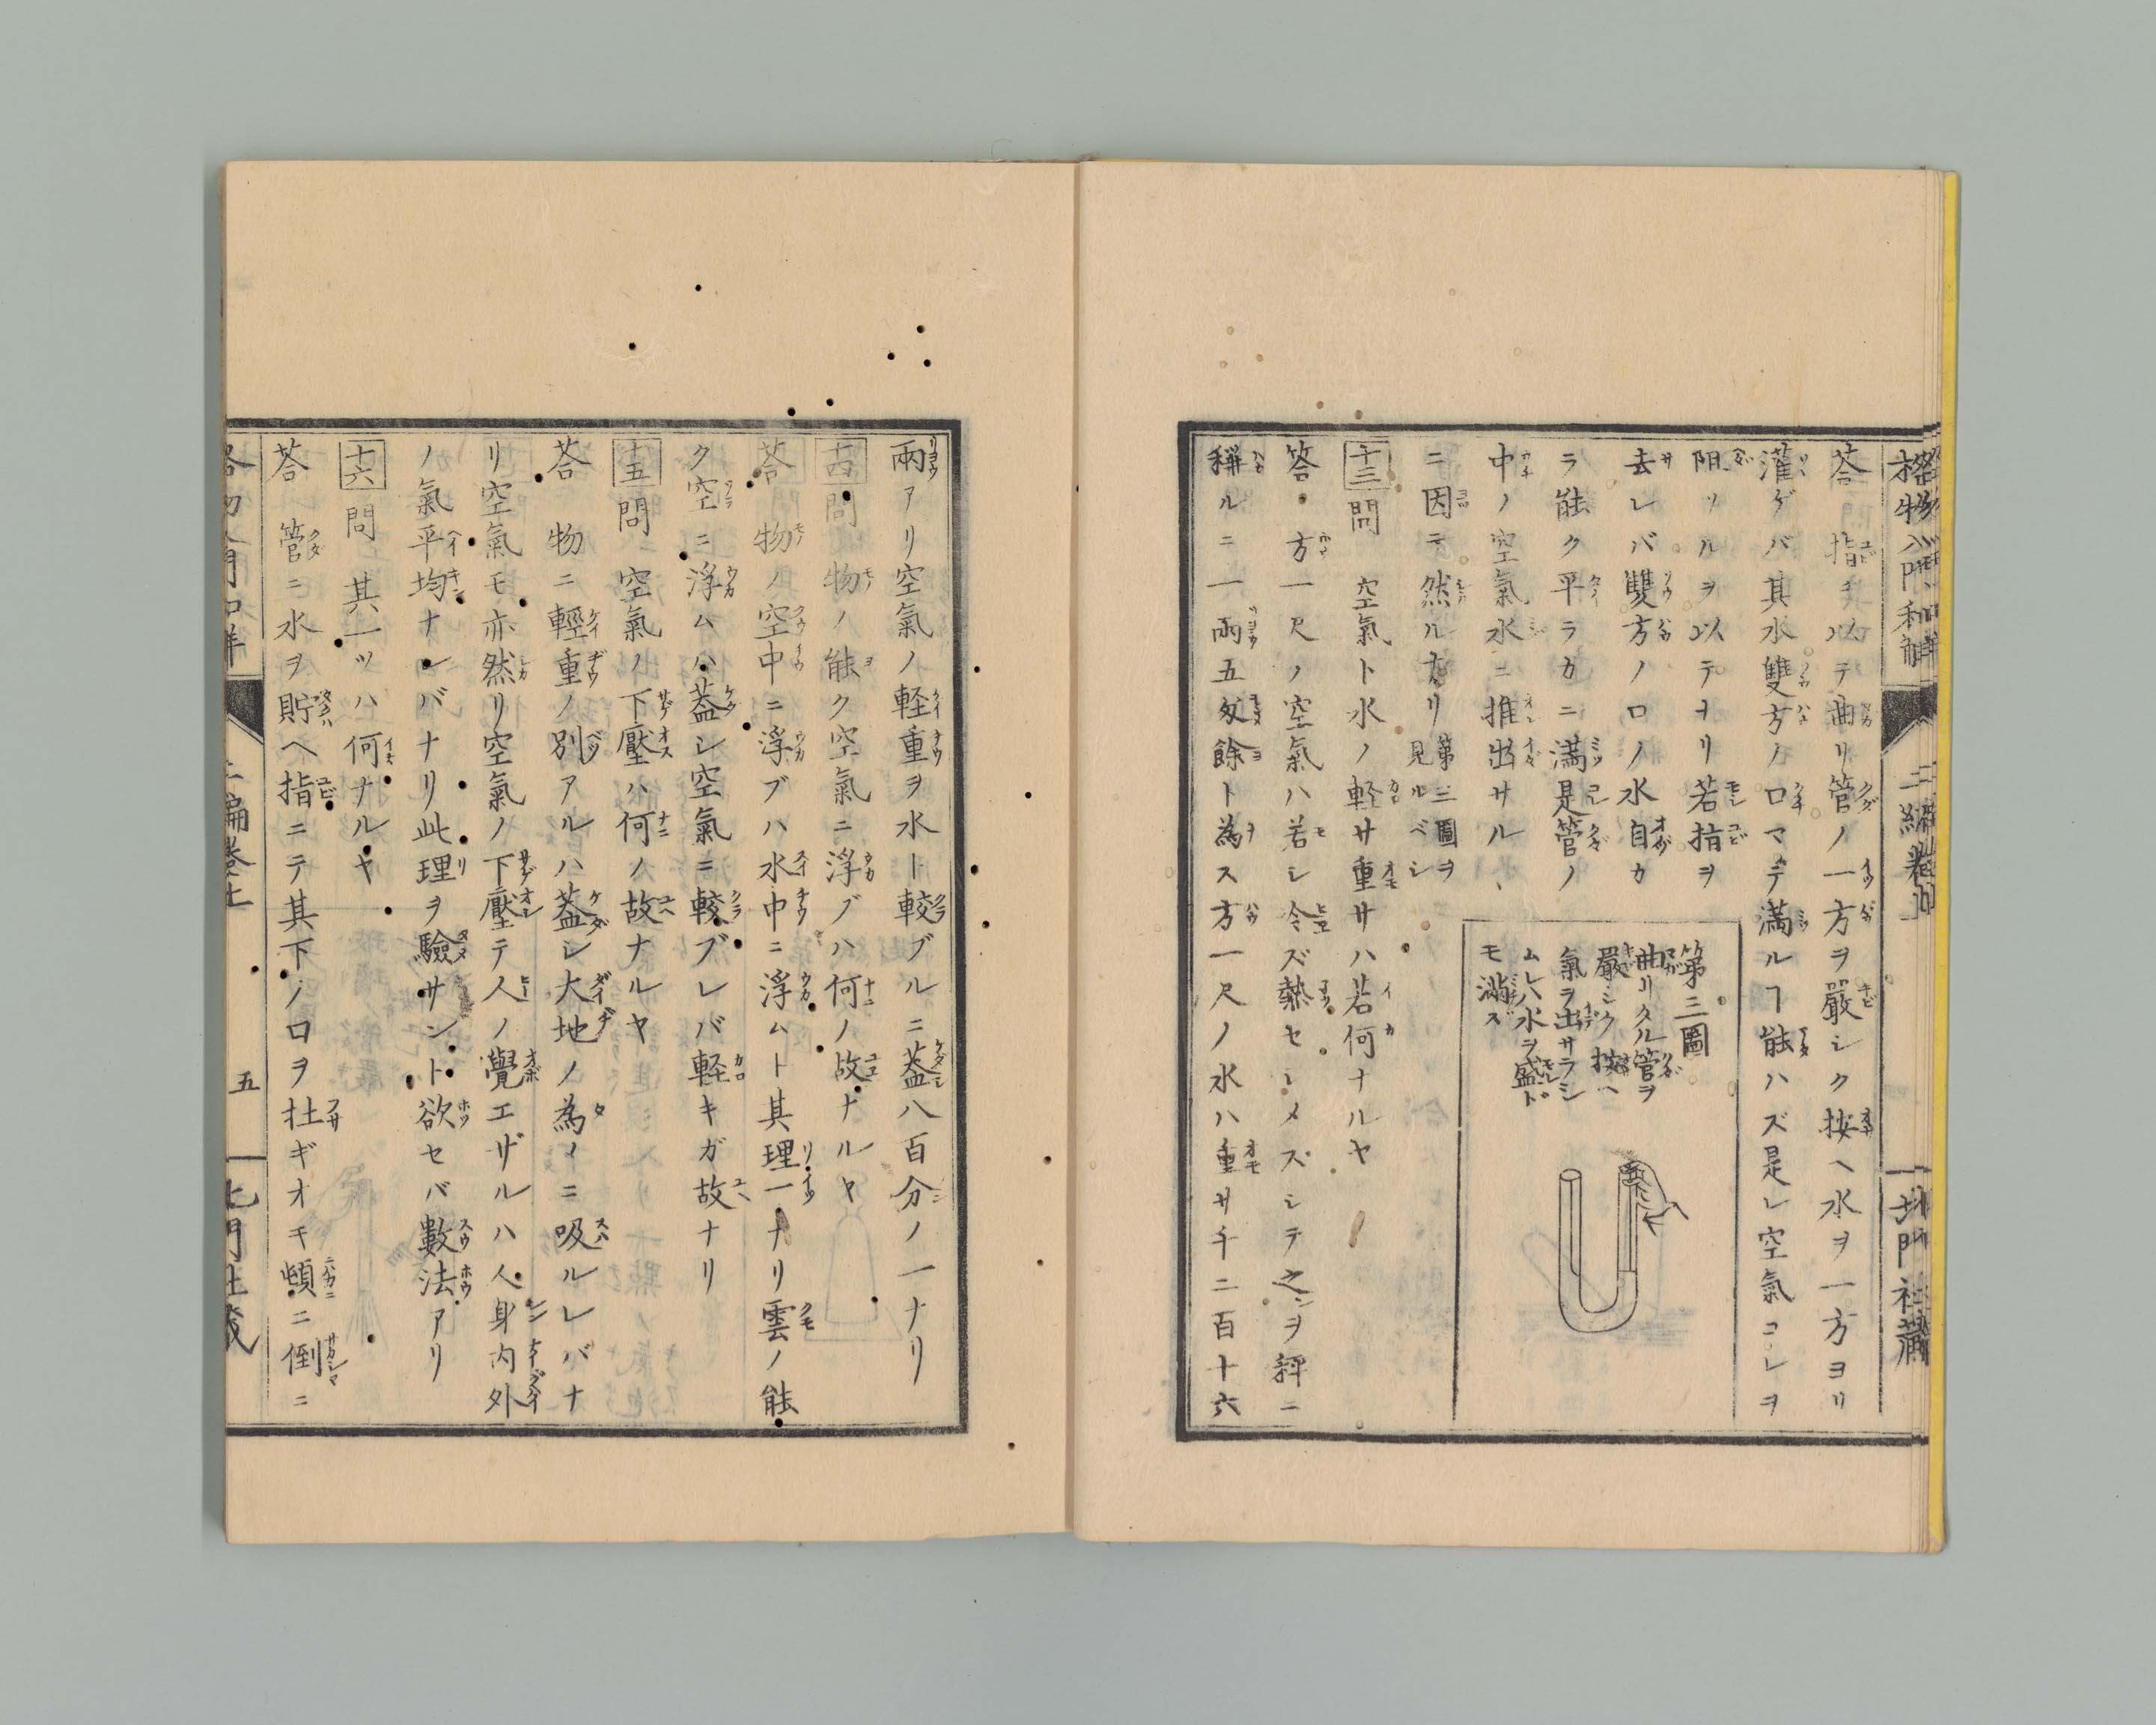 格物入門和解
二編卷上
北門社藏
荅 指ヲ以テ曲リ管ノ一方ヲ嚴シク按ヘ水ヲ一方ヨリ
灌ゲバ其水雙方ノ口マデ滿ルヿ能ハズ是レ空氣コレヲ
阻ソルヲ以テナリ若指ヲ
去レバ雙方ノ口ノ水自カ
ラ能ク平ラカニ滿是管ノ
中ノ空氣水ニ推出サルヽ
ニ因テ然ルナリ 第三圖ヲ見ルベシ
第三圖
曲リタル管ヲ
嚴シク按ヘ
氣ヲ出サラシ
ムレハ水ヲ盛ド
モ滿ズ
十三 問 空氣ト水ノ軽サ重サハ若何ナルヤ
答 方一尺ノ空氣ハ若シ令ズ熱セシメズシテ之ヲ秤ニ
稱ルニ一兩五匁餘ト為ス方一尺ノ水ハ重サ千二百十六
兩アリ空氣ノ軽重ヲ水ト較ブルニ蓋八百分ノ一ナリ
十四 問 物ノ能ク空氣ニ浮ブハ何ノ故ナルヤ
荅 物ノ空中ニ浮ブハ水中ニ浮ムト其理一ナリ雲ノ能
ク空ニ浮ムハ蓋シ空氣ニ較ブレバ軽キガ故ナリ
十五 問 空氣ノ下壓ハ何ノ故ナルヤ
荅 物ニ輕重ノ別アルハ蓋シ大地ノ為メニ吸ルレバナ
リ空氣モ亦然リ空氣ノ下壓テ人ノ覺エザルハ人身内外
ノ氣平均ナレバナリ此理ヲ驗サント欲セバ數法アリ
十六 問 其一ツハ何ナルヤ
荅 管ニ水ヲ貯ヘ指ニテ其下ノ口ヲ杜ギオキ頓ニ倒ニ
格物入門和解
二編卷上
五
北門社藏